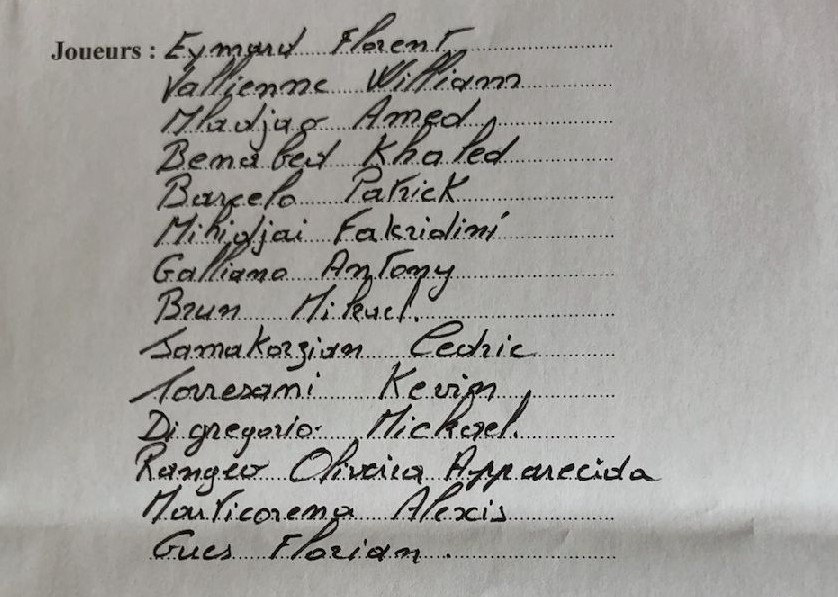 Joueurs : Eymard Florent
Vallienne William
Mladjao Amed
Benabed Khaled
Barcelo Patrick
Mihidjai Fakridini
Galliano Antony
Brun Mikael.
Samakorzian Cedric
Torresani Kevin
Di gregorio Mickael.
Rangeo Oliveira Apparecida
Marticorena Alexis
Gues Florian.